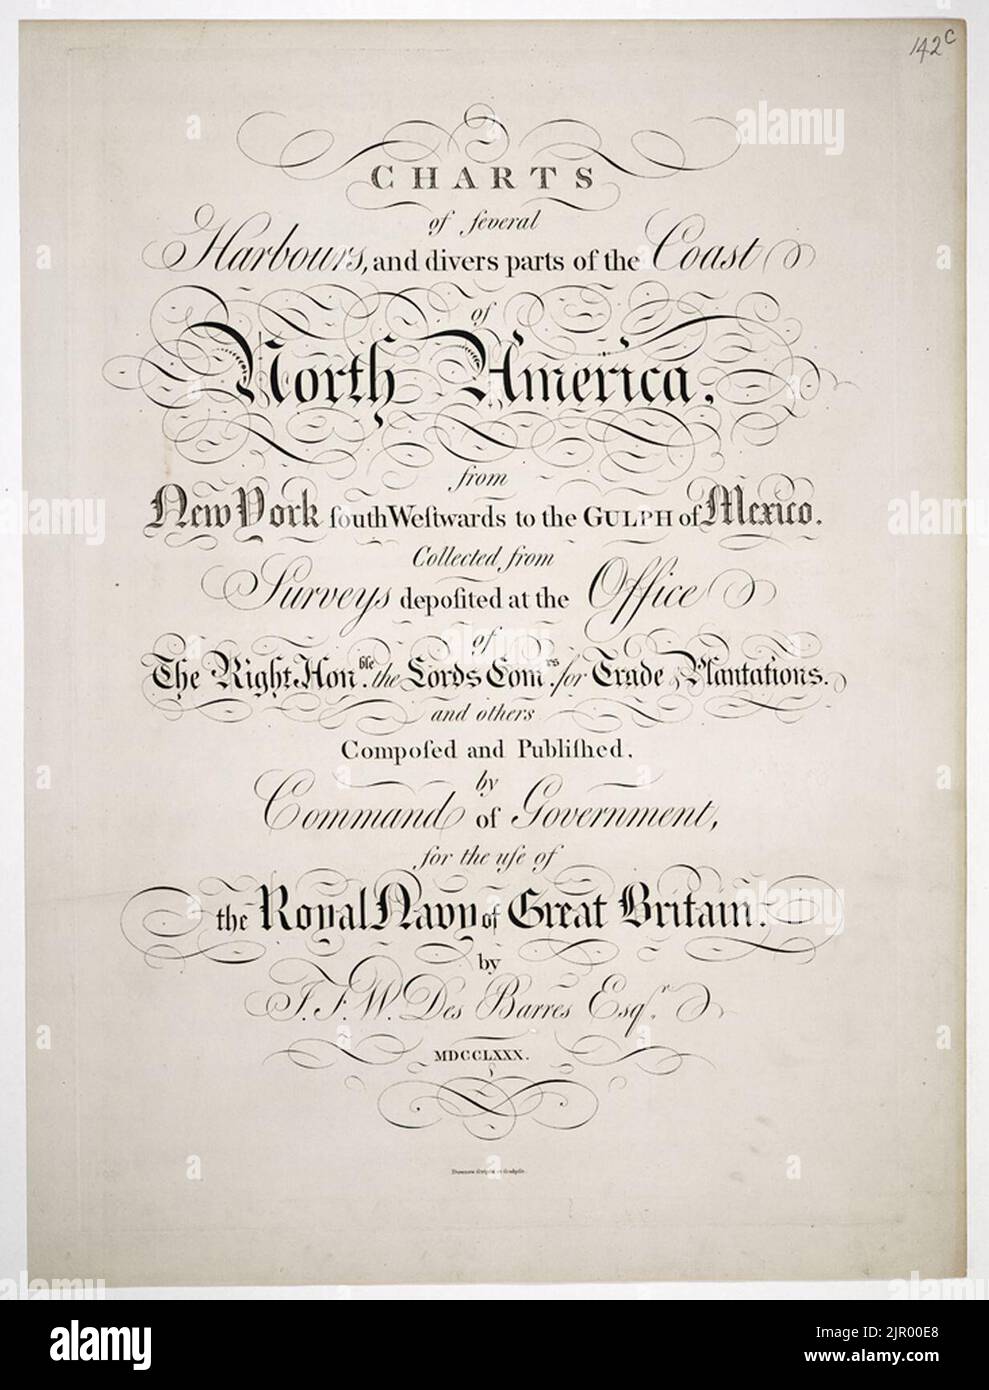 142c
CHARTS
of ſeveral
Harbours, and divers parts of the Coast
of
North America,
from
New York ſouth Weſtwards to the GULPH of Mexico.
Collected from
Surveys depoſited at the Office
of
The Right Honble. the Lords Comrs. for Trade & Plantations.
and others
Compoſed and Publiſhed,
by
Command of Government,
for the uſe of
the Royal Navy of Great Britain.
by
J. F. W. Des Barres Esqr.
MDCCLXXX.
alamy
Image ID: 2JR00E8
www.alamy.com